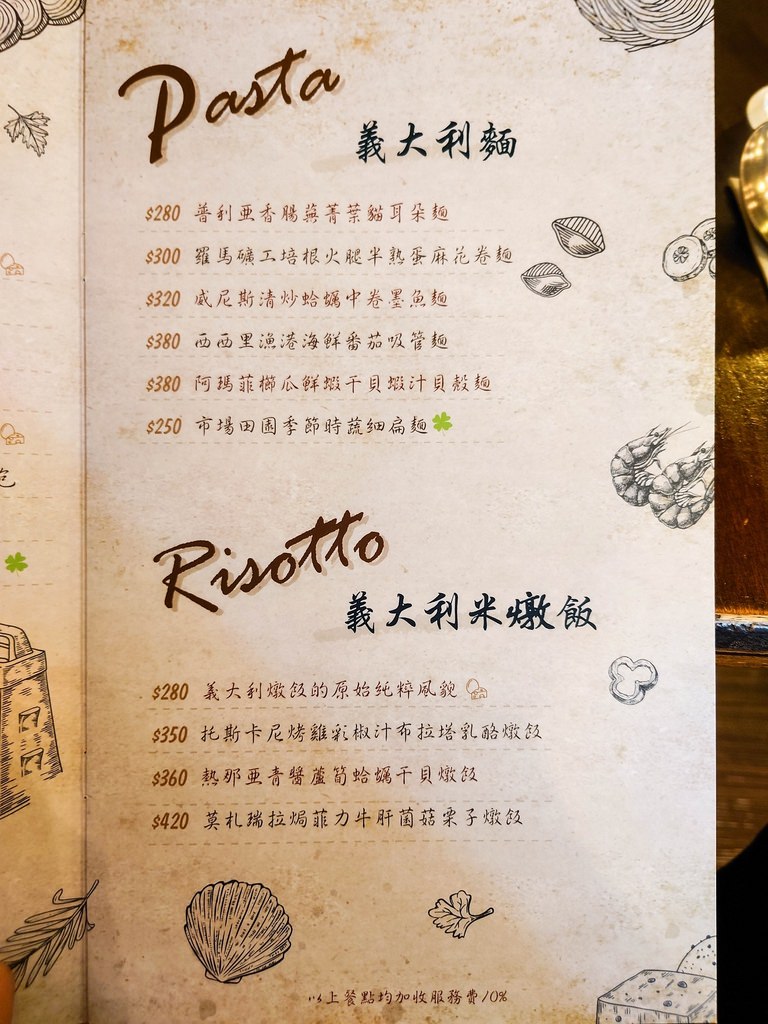 Pasta
義大利麵
$280 普利亞香腸蕪菁葉貓耳朵麵
$300 羅馬礦工培根火腿半熟蛋麻花卷麵
$320 威尼斯清炒蛤蠣中卷墨魚麵
$380 西西里漁港海鮮番茄吸管麵
$380 阿瑪菲櫛瓜鮮蝦干貝蝦汁貝殼麵
$250 市場田園季節時蔬細扁麵
Risotto
義大利米燉飯
$280 義大利燉飯的原始純粹風貌
$350 托斯卡尼烤雞彩椒汁布拉塔乳酪燉飯
$360 熱那亞青醬蘆筍蛤蠣干貝燉飯
$420 莫札瑞拉焗菲力牛肝菌菇栗子燉飯
以上餐點均加收服務費10%